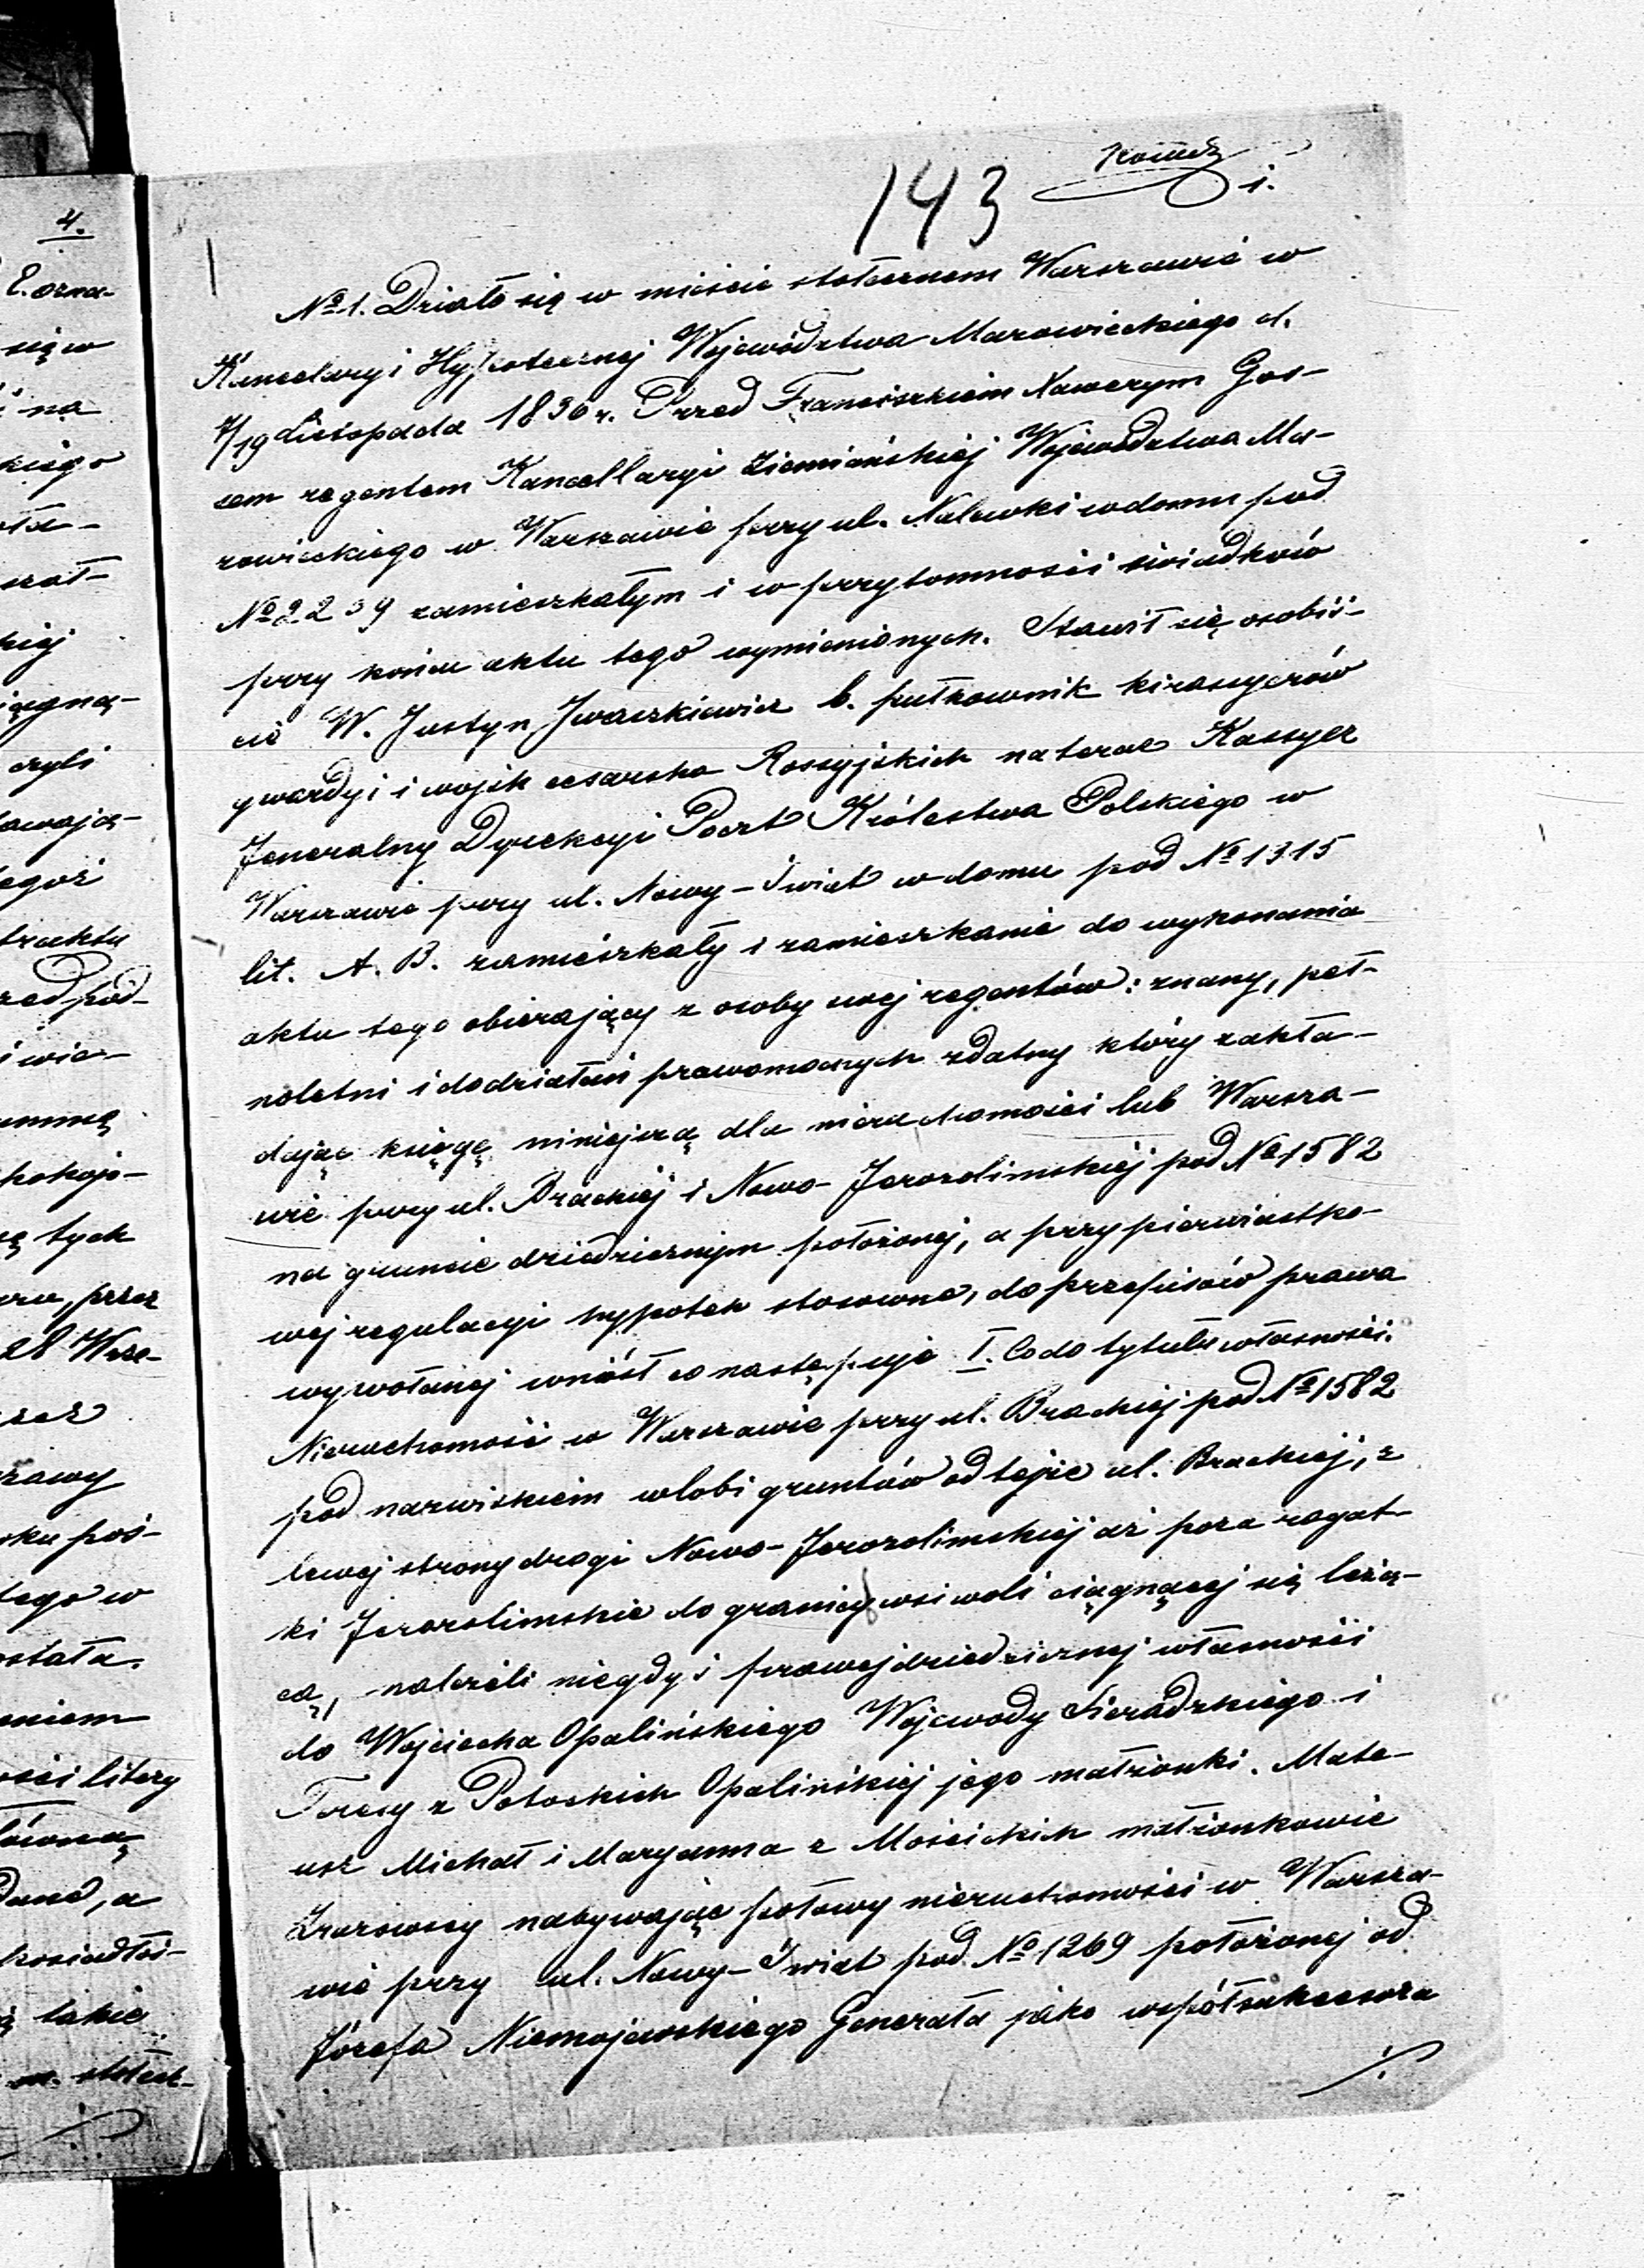 4.
E. ozna-
się w
na
kiego
szał-
kiej
iągną-
czyli
tegoż
traktu
zed pod-
i wia-
ummą
pokojo-
ą tych
, przez
28 Wrze-
zez
rawy
oku poś-
tego w
ostała.
eniem
ości litery
dane, a
posiadłoś-
takie
m. stołecz-
143
1.
№ 1. Działo się w mieście stołecznem Warszawie w
Kancelaryi Hypotecznej Województwa Mazowieckiego d.
7/19 Listopada 1836 r. Przed Franciszkiem Xawerym Gos-
sem regentem Kancellaryi Ziemiańskiej Województwa Ma-
zowieckiego w Warszawie przy ul. Nalewki w domu pod
№ 2239 zamieszkałym i w przytomności świadków
przy końcu aktu tego wymienionych. Stawił się osobiś-
cie W. Justyn Iwaszkiewicz b. pułkownik kirassyerów
gwardyi i wojsk cesarsko Rossyjskich na teraz Kassyer
Jeneralny Dyrekcyi Poczt Królestwa Polskiego w
Warszawie przy ul. Nowy-Świat w domu pod № 1315
lit. A. B. zamieszkały i zamieszkanie do wykonania
aktu tego obierający z osoby swej regentów: znany, peł-
noletni i do działań prawomocnych zdatny który zakła-
dając księgę niniejszą dla nieruchomości lub Warsza-
wie przy ul. Brackiej i Nowo-Jerozolimskiej pod № 1582
na gruncie dziedzicznym położonej, a przy pierwiastko-
wej regulacyi hypotek stosowne, do przepisów prawa
wywołanej wniósł co następuje I. Co do tytułu własności.
Nieruchomość w Warszawie przy ul. Brackiej pod № 1582
pod nazwiskiem wlobi gruntów od tejże ul. Brackiej, z
lewej strony drogi Nowo-Jerozolimskiej aż poza rogat-
ki Jerozolimskie do granicy wsi woli ciągnącej się leżą-
cą, należeli niegdyś prawej dziedzicznej własności
do Wojciecha Opalińskiego Wojewody Sieradzkiego i
Teresy z Potockich Opalińskiej jego małżonki. Mate-
usz Michał i Maryanna z Mościckich małżonkowie
nabywając połowy nieruchomości w Warsza-
wie przy ul. Nowy-Świat pod № 1269 położonej od
Józefa Niemojewskiego Generała jako współsukcessora